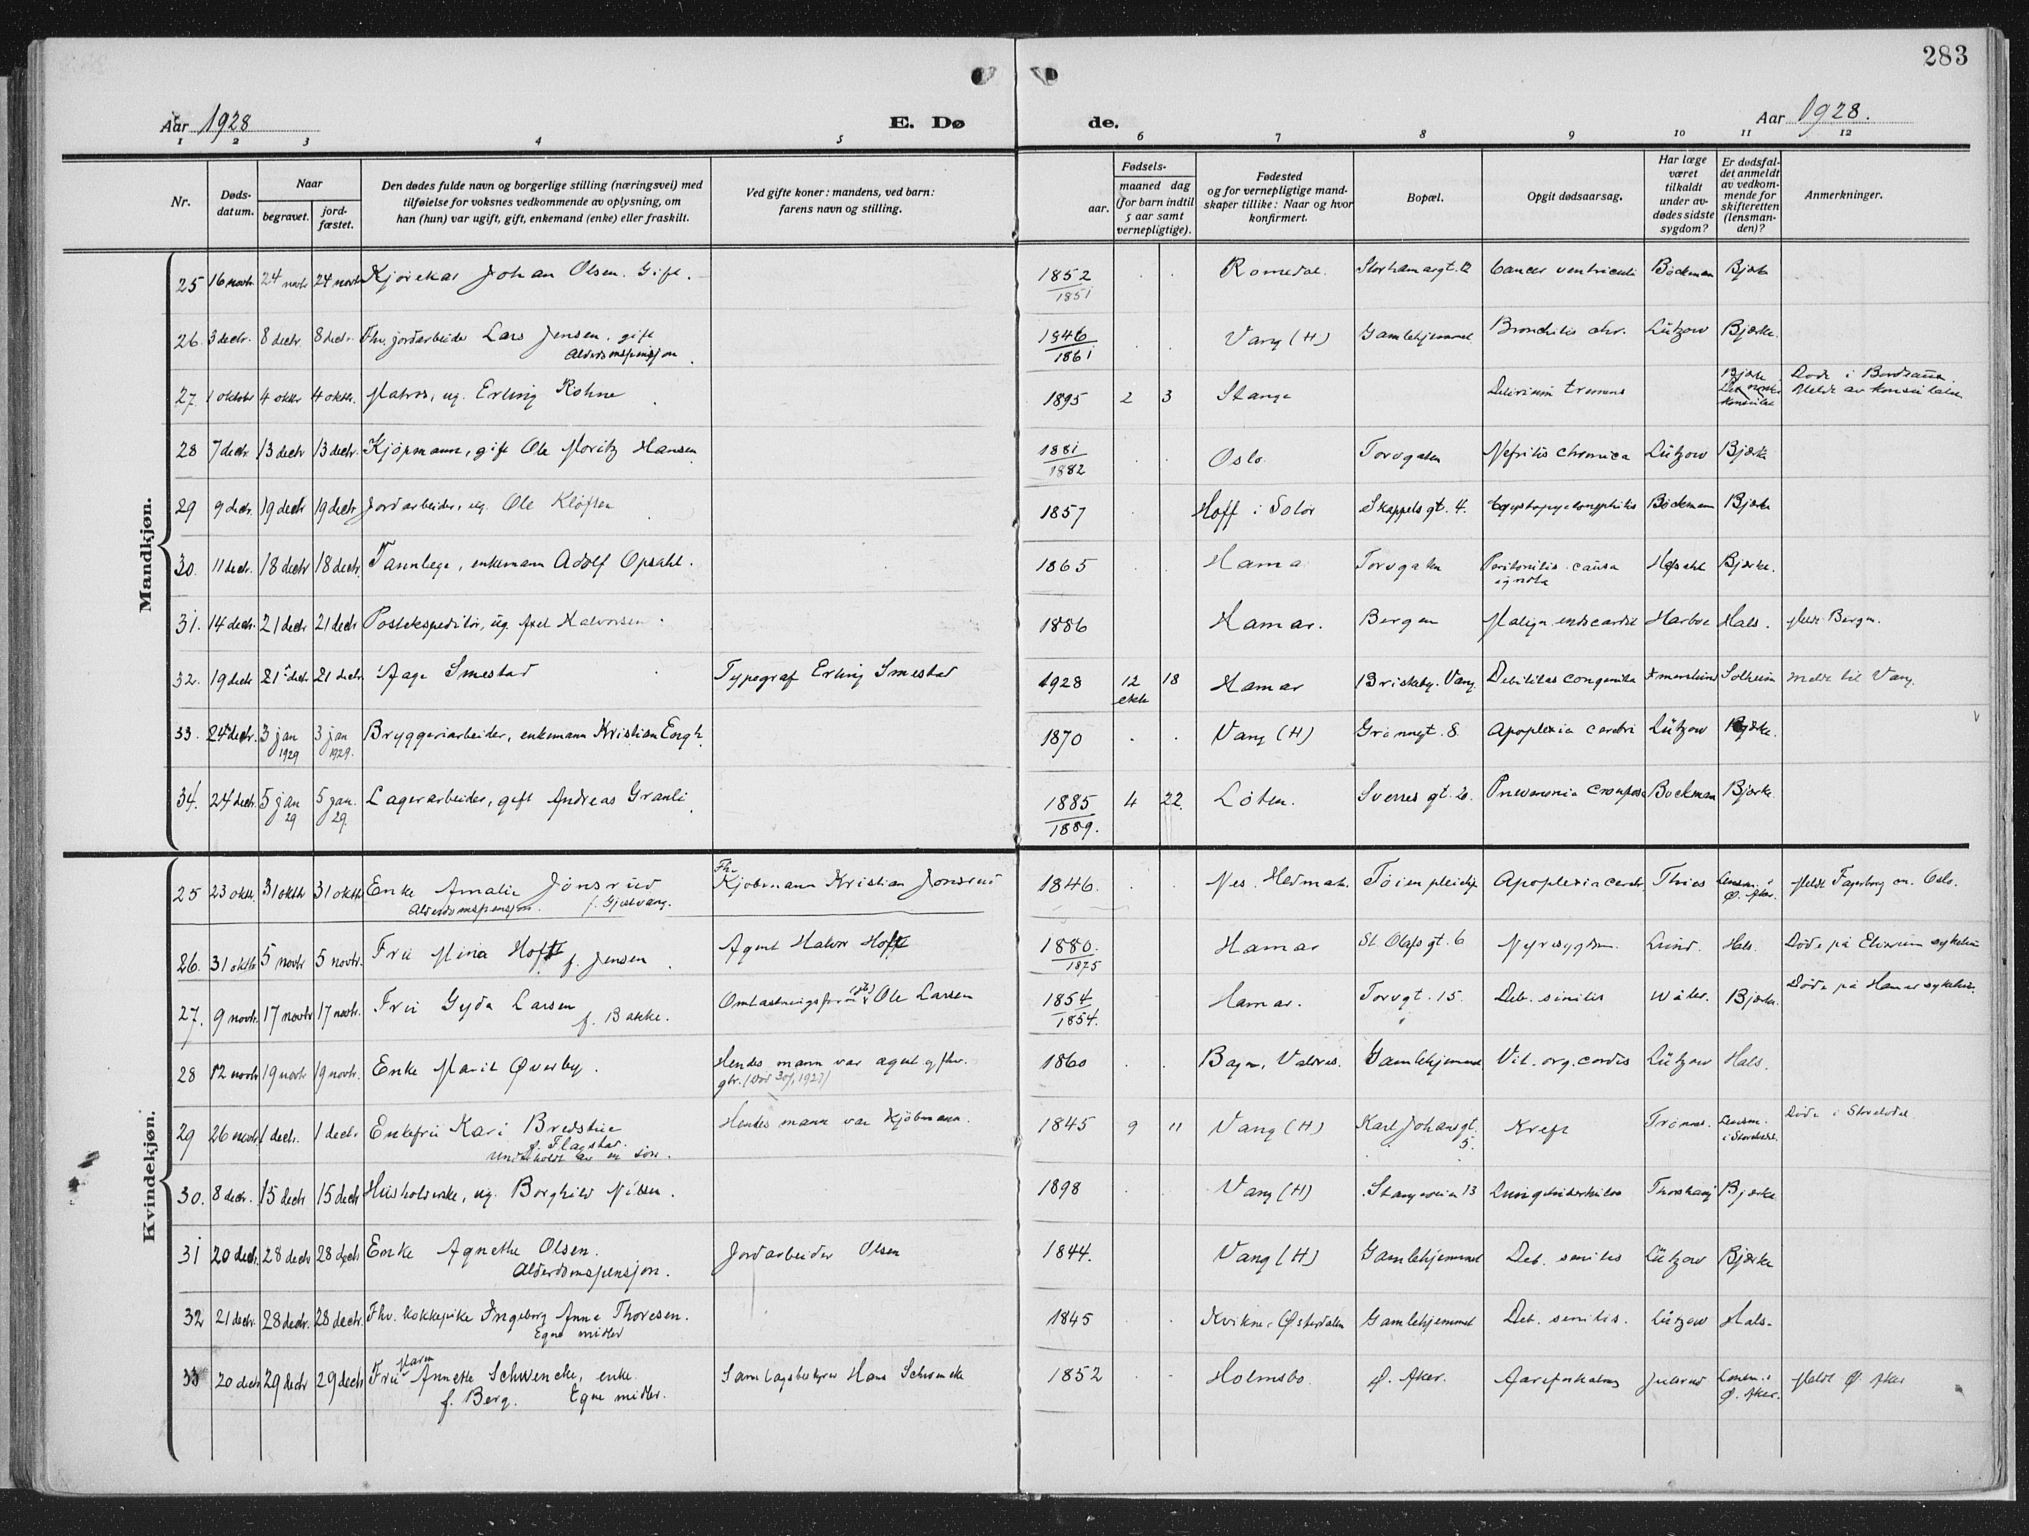 283
Aar 1928
E. Dø
de.
Aar 1928.
1 2 3 4 5 6 7 8 9 10 11 12
Nr.
Døds-
datum.
Naar
begravet.
jord-
fæstet.
Den dødes fulde navn og borgerlige stilling (næringsvei) med
tilføielse for voksnes vedkommende av oplysning, om
han (hun) var ugift, gift, enkemand (enke) eller fraskilt.
Ved gifte koner: mandens, ved barn:
farens navn og stilling.
Fødsels-
aar.
maaned dag
(for barn indtil
5 aar samt
vernepligtige).
Fødested
og for vernepligtige mand-
skaper tillike: Naar og hvor
konfirmert.
Bopæl.
Opgit dødsaarsag.
Har læge
været
tilkaldt
under av-
dødes sidste
sygdom?
Er dødsfal-
det anmeldt
av vedkom-
mende for
skifteretten
(lensman-
den)?
Anmerkninger.
Mandkjøn.
25 16 novbr. 24 novbr 24 novbr Kjørekar Johan Olsen. Gift. 1852 Romedal. Storhamargt. 12 Cancer ventriculi Bøckman Bjerke
1851
26. 3 decbr. 8 decbr 8 decbr. Fhv. jordarbeider Lars Jensen, gift 1846 Vang (H) Gamlehjemmet Bronchitis chr. Lützow Bjerke.
Alderdomspensjon 1861
27. 1 oktobr 4 oktbr 4 oktbr. Matros, ug. Erling Rohne 1895 2 3 Stange Delirium tremens Bjerke Døde i Bordeaux.
Det norske konsulat Meldt av konsulatet
28 7 decbr. 13 decbr 13 decbr. Kjøpmann, gift Ole Moritz Hansen 1881 Oslo. Torvgaten Nefritis chronica Lützow Bjerke
1882
29 9 decbr. 19 decbr 19 decbr Jordarbeider, ug. Ole Kløften 1857 Hoff i Solør Skappelsgt. 4. Bøckman Bjerke
30. 11 decbr. 18 decbr 18 decbr. Tannlege, enkemann Adolf Opsahl. 1865 Hamar Torvgaten Peritonitis causa Hofsahl Bjerke.
ignota
31. 14 decbr. 21 decbr 21 decbr Postekspeditør, ug. Axel Halvorsen. 1886 Hamar. Bergen Malign endocardit Harboe Hals. Meldt Bergen.
32. 19 decbr 21 decbr 21 decbr Aage Smestad Typograf Erling Smestad 1928 12 18 Hamar Briskeby. Vang. Debilitas congenita Solheim Meldt til Vang.
33. 24 decbr. 3 jan 3 jan Bryggeriarbeider, enkemann Kristian Engh. 1870 Vang (H) Grønnegt. 8. Apoplexia cerebri Lützow Bjerke.
1929 1929.
34. 24 decbr. 5 jan 5 jan. Lagerarbeider, gift Andreas Granli 1885 4 22. Løten. Sverres gt. 20. Pneumonia crouposa Bøckman Bjerke.
29 29. 1889.
Kvindekjøn.
25 23 oktbr. 31 oktbr 31 oktbr Enke Amalie Jønsrud Fhv. Kjøbmann Kristian Jønsrud 1846. Nes. Hedmark. Apoplexia cerebr. Thiis Lensm. i Ø. Aker. Meldt Fagerborg m. Oslo.
Alderdomspensjon. f. Gjestvang.
26. 31 oktbr 5 novbr 5 novbr. Fru Mina Hoff f. Jensen Agent Halvor Hoff 1880. Hamar St. Olafsgt. 6 Nyresygdom. Lund. Hals. Døde på Elverum sykehus
1875
27. 9 novbr. 17 novbr 17 novbr. Fru Gyda Larsen Ole Larsen 1854 Hamar. Torvgt. 15. Deb. senilis Bjerke. Døde på Hamar sykehus.
f. Bakke. 1854.
28 12 novbr 19 novbr 19 novbr. Enke Marit Øverby. Hendes mann var agent 1860 Bagn, Valdres. Gamlehjemmet Vit. org. cordis Lützow Hals.
29 26 novbr 1 decbr. 1 decbr Enkefru Kari Bredshie Hendes mann var kjøbmann. 1845 9 11 Vang (H) Karl Johansgt. 5. Kreft Lensm. i Storelvdal. Døde i Storelvdal.
f. Flagstad.
Underholdt av en søn.
30. 8 decbr. 15 decbr 15 decbr Husholderske, ug. Borghild Nilsen. 1898 Vang (H) Stangeveien 13 Lungetuberkulose Bjerke
31 20 decbr. 28 decbr 28 decbr Enke Agnethe Olsen. Jordarbeider Olsen 1844. Vang (H) Gamlehjemmet Deb. senilis Lützow Bjerke
Alderdomspensjon.
32 21 decbr 28 decbr. 28 decbr. Fhv. kokkepike Ingeborg Anne Thoresen. 1845 Kvikne i Østerdalen Gamlehjemmet Deb. senilis. Lützow Hals.
Egne midler
33 20 decbr 29 decbr 29 decbr Fru Maren Annette Schwencke, enke. Samlagsbestyrer Hans Schwencke 1852 Holmsbo. Ø. Aker. Aareforkalkning Lensm. i Ø. Aker. Meldt Ø. Aker
f. Berg. Egne midler.